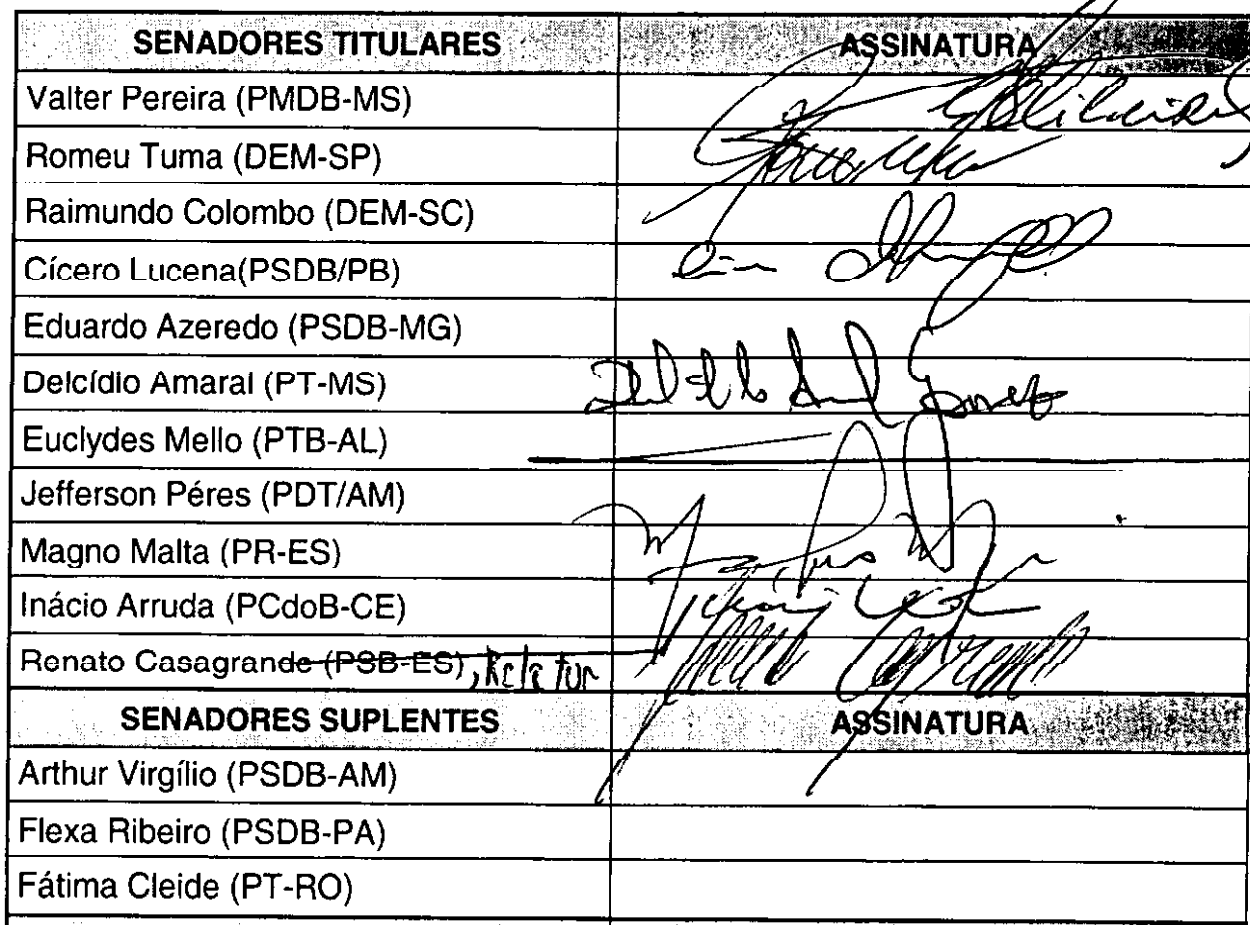 SENADORES TITULARES ASSINATURA
Valter Pereira (PMDB-MS)
Romeu Tuma (DEM-SP)
Raimundo Colombo (DEM-SC)
Cícero Lucena(PSDB/PB)
Eduardo Azeredo (PSDB-MG)
Delcídio Amaral (PT-MS)
Euclydes Mello (PTB-AL)
Jefferson Péres (PDT/AM)
Magno Malta (PR-ES)
Inácio Arruda (PCdoB-CE)
Renato Casagrande (PSB-ES), Relator
SENADORES SUPLENTES ASSINATURA
Arthur Virgílio (PSDB-AM)
Flexa Ribeiro (PSDB-PA)
Fátima Cleide (PT-RO)